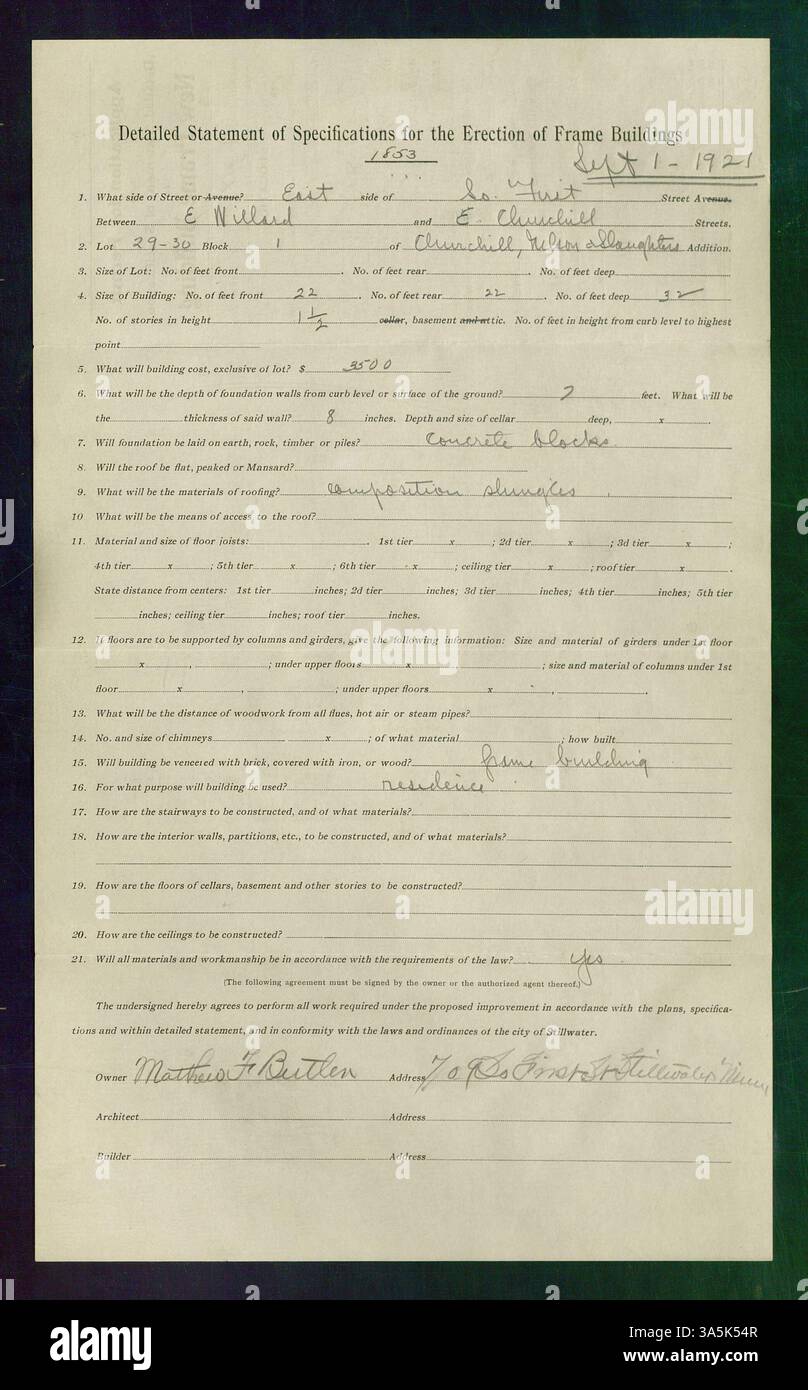 Detailed Statement of Specifications for the Erection of Frame Buildings
1853
Sept 1 - 1921
1. What side of Street or Avenue? East side of So. First Street Avenue.
Between E Willard and E. Churchill Streets.
2. Lot 29-30 Block 1 of Churchill, Nelson & Slaughters Addition.
3. Size of Lot: No. of feet front . No. of feet rear . No. of feet deep .
4. Size of Building: No. of feet front 22 . No. of feet rear 22 . No. of feet deep 32
No. of stories in height 1 1/2 cellar, basement and attic. No. of feet in height from curb level to highest
point
5. What will building cost, exclusive of lot? $ 3500
6. What will be the depth of foundation walls from curb level or surface of the ground? 7 feet. What will be
the thickness of said wall? 8 inches. Depth and size of cellar deep, x .
7. Will foundation be laid on earth, rock, timber or piles? concrete blocks
8. Will the roof be flat, peaked or Mansard?
9. What will be the materials of roofing? composition shingles
10 What will be the means of access to the roof?
11. Material and size of floor joists: . 1st tier x ; 2d tier x ; 3d tier x ;
4th tier x ; 5th tier x ; 6th tier x ; ceiling tier x ; roof tier x .
State distance from centers: 1st tier inches; 2d tier inches; 3d tier inches; 4th tier inches; 5th tier
inches; ceiling tier inches; roof tier inches.
12. If floors are to be supported by columns and girders, give the following information: Size and material of girders under 1st floor
x , ; under upper floors x ; size and material of columns under 1st
floor x , ; under upper floors x , .
13. What will be the distance of woodwork from all flues, hot air or steam pipes?
14. No. and size of chimneys x ; of what material ; how built
15. Will building be veneered with brick, covered with iron, or wood? frame building
16. For what purpose will building be used? residence
17. How are the stairways to be constructed, and of what materials?
18. How are the interior walls, partitions, etc., to be constructed, and of what materials?
19. How are the floors of cellars, basement and other stories to be constructed?
20. How are the ceilings to be constructed?
21. Will all materials and workmanship be in accordance with the requirements of the law? yes
(The following agreement must be signed by the owner or the authorized agent thereof.)
The undersigned hereby agrees to perform all work required under the proposed improvement in accordance with the plans, specifica-
tions and within detailed statement, and in conformity with the laws and ordinances of the city of Stillwater.
Owner Mathew F Butler Address 709 So First St Stillwater Minn,
Architect Address
Builder Address
alamy
3A5K54R
www.alamy.com